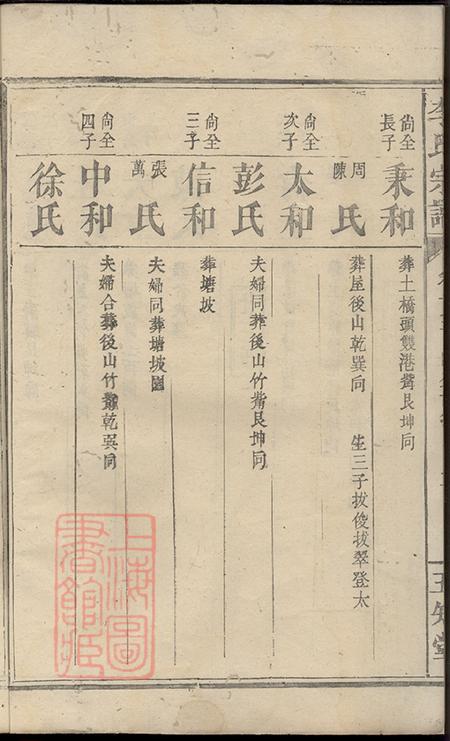 李氏宗譜
尚全長子
秉和
葬土橋頭雙港嘴艮坤向
周陳氏
葬屋後山乾巽向 生三子拔俊拔翠登太
尚全次子
太和
彭氏
夫婦同葬後山竹嘴艮坤向
尚全三子
信和
葬塘坡
張萬氏
夫婦同葬塘坡園
尚全四子
中和
徐氏
夫婦合葬後山竹嘴乾巽向
上海圖書館藏